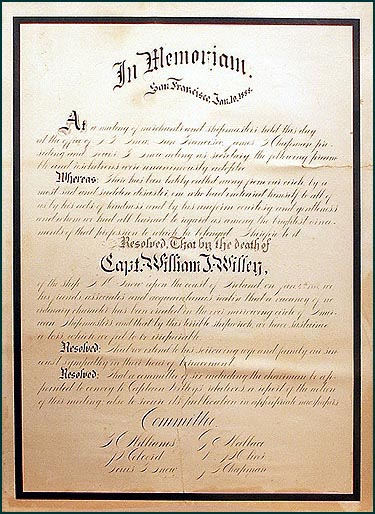 In Memoriam.
San Francisco, Jan. 10, 1888.
At a meeting of merchants and shipmasters held this day
at the office of San Francisco, James Chapman pre-
siding and Louis Snow acting as Secretary the following pream-
ble and resolutions were unanimously adopted
Whereas: has called away from our circle by a
most sad and sudden disaster, one who had endeared himself to all of
us by his acts of kindness and by his and gentleness
and whom we had all learned to regard as among the brightest orna-
ments of that profession to which he belonged. Therefore be it
Resolved, That by the death of
Capt. William J. Willey,
of the ship upon the coast of Ireland on
his friends associates and acquaintances realize that a vacancy of no
ordinary character has been created in the narrowing circle of Ameri-
can Shipmasters and that by this terrible shipwreck, we have sustained
a loss which we feel to be irreparable.
Resolved: That we extend to his sorrowing and family our sin-
cerest sympathy in their hour of bereavement
Resolved: That a committee of six including the chairman be ap-
pointed to convey to Captain Willey's relatives a report of the action
of this meeting, also to secure its publication in appropriate newspapers
Committee
Williams Wallace
Louis Snow Chapman